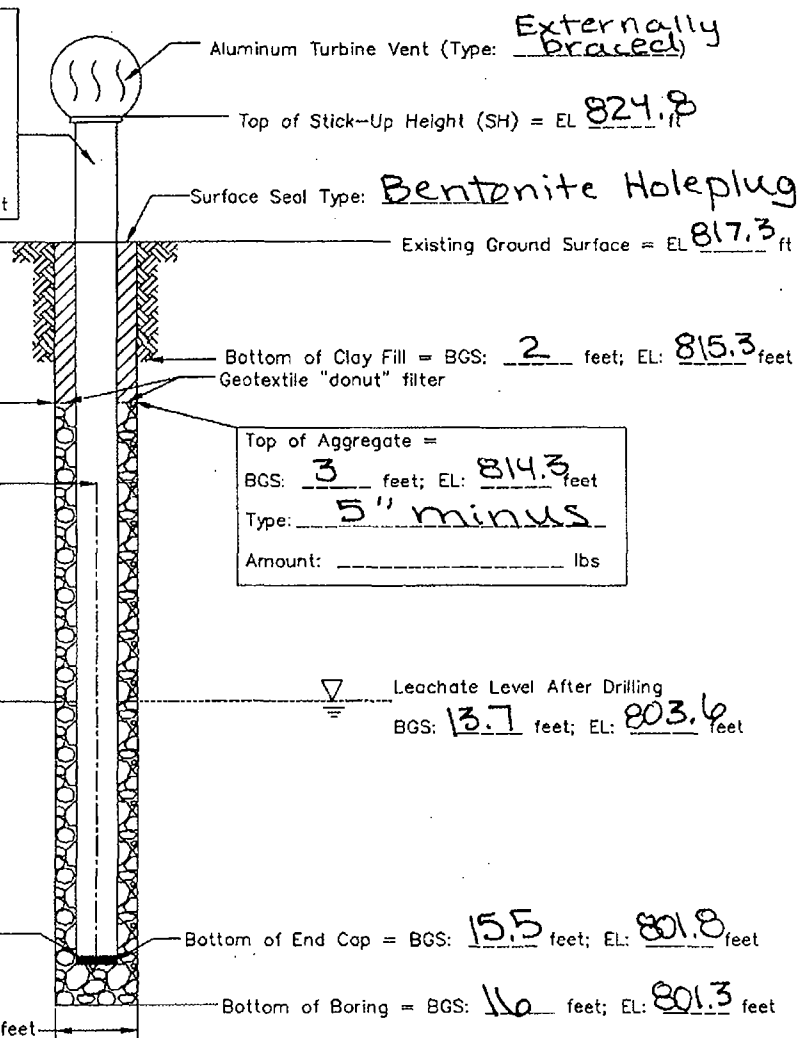 Aluminum Turbine Vent (Type: Externally braced)
Top of Stick-Up Height (SH) = EL 824.8 ft
t
Surface Seal Type: Bentonite Holeplug
Existing Ground Surface = EL 817.3 ft
Bottom of Clay Fill = BGS: 2 feet; EL: 815.3 feet
Geotextile "donut" filter
Top of Aggregate =
BGS: 3 feet; EL: 814.3 feet
Type: 5" minus
Amount: ______ lbs
Leachate Level After Drilling
BGS: 13.7 feet; EL: 803.6 feet
Bottom of End Cap = BGS: 15.5 feet; EL: 801.8 feet
Bottom of Boring = BGS: 16 feet; EL: 801.3 feet
feet